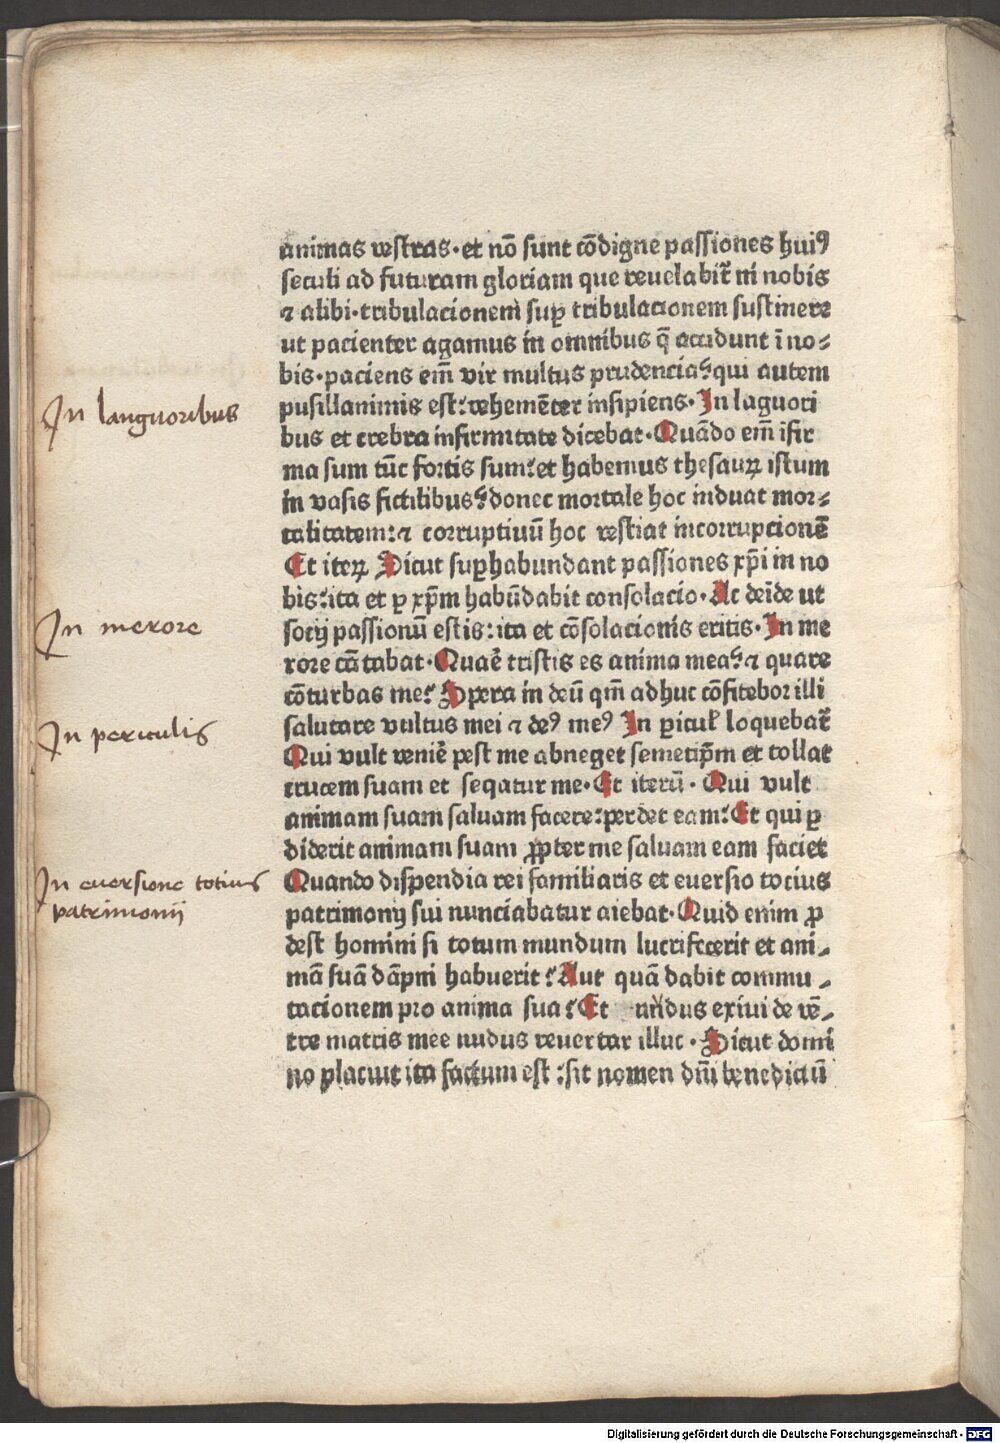 animas vestras·et nō sunt cōdigne passiones huiꝰ
seculi ad futuram gloriam que reuelabit᷑ in nobis
⁊ alibi·tribulacionem suꝑ tribulacionem sustinere
ut pacienter agamus in omnibus q̄ accidunt ī no⸗
bis·paciens em̄ vir multus prudencia?qui autem
pusillanimis est:vehemēter insipiens·In laguori
bus et crebra infirmitate dicebat·Quādo em̄ ifir
ma sum tūc fortis sum:et habemus thesauꝝ istum
in vasis fictilibus?donec mortale hoc induat mor⸗
talitatem:⁊ corruptiuū hoc vestiat incorrupcionē
Et iteꝝ Sicut suꝑhabundant passiones xp̄i in no
bis:ita et ꝑ xp̄m habūdabit consolacio·Ac deīde ut
socij passionū estis:ita et cōsolacionis eritis·In me
rore cātabat·Quaē tristis es anima mea?⁊ quare
cōturbas me?Spera in deū qm̄ adhuc cōfitebor illi
salutare vultus mei ⁊ deꝰ meꝰ In ꝑicul̕ loquebat᷑
Qui vult veniē pest me abneget semetip̄m et tollat
crucem suam et seqatur me·Et iterū· Qui vult
animam suam saluam facere:perdet eam:Et qui ꝑ
diderit animam suam ꝓpter me saluam eam faciet
Quando dispendia rei familiaris et euersio tocius
patrimonij sui nunciabatur aiebat·Quid enim ꝓ
dest homini si totum mundum lucrifecerit et ani⸗
mā suā dāpni habuerit?Aut quā dabit commu⸗
tacionem pro anima sua?Et nudus exiui de vē⸗
tre matris mee nudus reuertar illuc·Sicut domi
no placuit ita factum est:sit nomen dn̄i benedictū
In languoribus
In merore
In periculis
In euersione totius
patrimonij
Digitalisierung gefördert durch die Deutsche Forschungsgemeinschaft - DFG